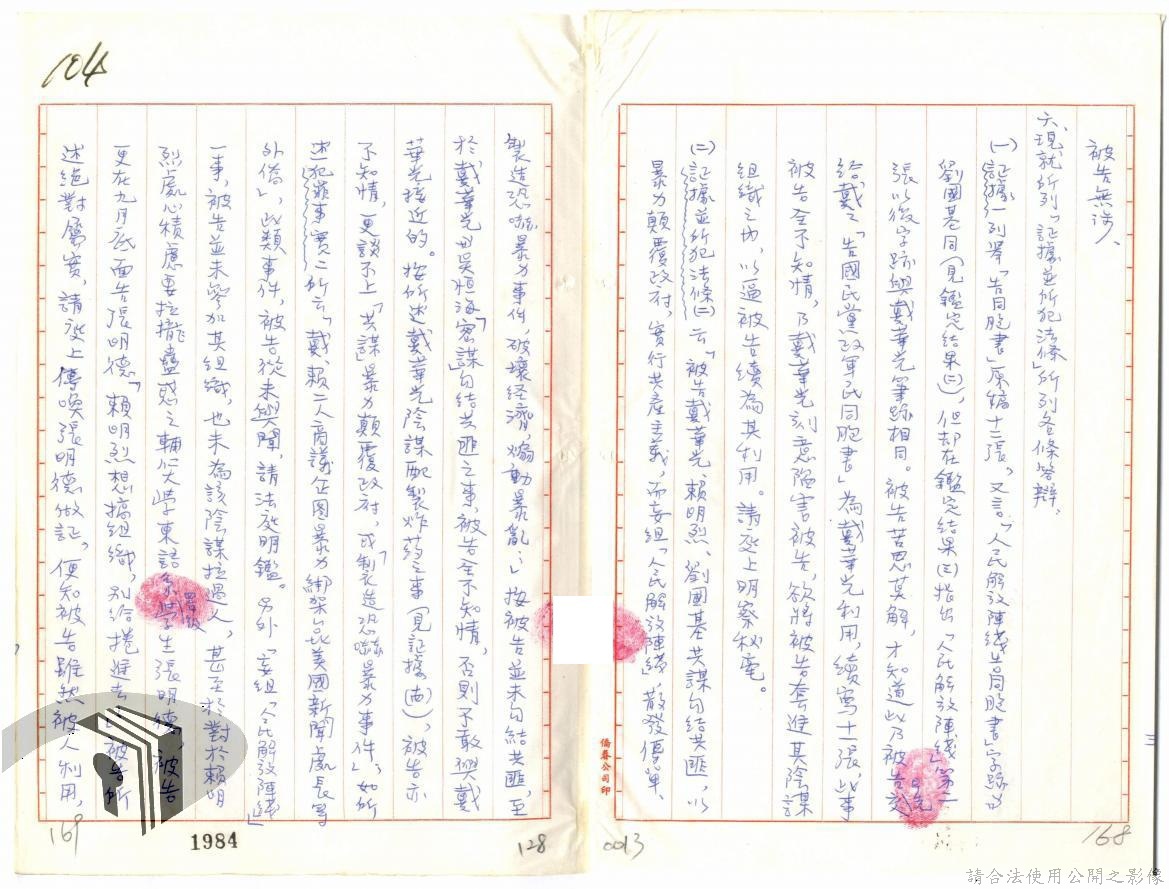 被告無涉、
六、現就所列「証據並所犯法條」所列各條答辯、
(一)証據一列舉「告同胞書」原稿十二張，又言：「人民解放陣綫告同胞書」字跡與
劉國基同(見鑑定結果(二))，但却在鑑定結果(三)指出「人民解放陣綫」第一
張以後字跡與戴華光筆跡相同。被告苦思莫解，才知道此乃被告
給戴之「告國民黨政軍民同胞書」為戴華光利用，續寫十一張，此事
被告全不知情，乃戴華光刻意陷害被告，欲將被告套進其陰謀
組織之内，以逼被告續為其利用。請庭上明察秋毫。
(二)証據並所犯法條(二)云「被告戴華光、賴明烈、劉國基共謀勾結共匪，以
暴力顛覆政府，實行共產主義，而妄組「人民解放陣綫」散發傳單、
製造恐嚇暴力事件，破壞經濟，煽動暴亂…」按被告並未勾結共匪，至
於戴華光與吳恒海「密謀」勾結共匪之事，被告全不知情，否則不敢與戴
華光接近的。按所述戴華光陰謀配製炸葯之事(見証據(由))，被告亦
不知情，更談不上「共謀暴力顛覆政府，或「製造恐嚇暴力事件」，如所
述犯罪事實二所云「戴、賴二人商議企圖暴力綁架台北美國新聞處長等
外僑」，此類事件，被告從未與聞，請法庭明鑑。另外「妄組「人民解放陣綫」
一事，被告並未參加其組織，也未為該陰謀拉過人，甚至於對於賴明
烈處心積慮要拉攏蠱惑之輔仁大學東語系學生張明德，被告
更在九月底面告張明德「賴明烈想搞組織，別給捲進去」，被告所
述絕對屬實，請庭上傳喚張明德做証，便知被告雖然被人利用，
104
169
1984
128
0013
168
僑春公司印
三
請合法使用公開之影像